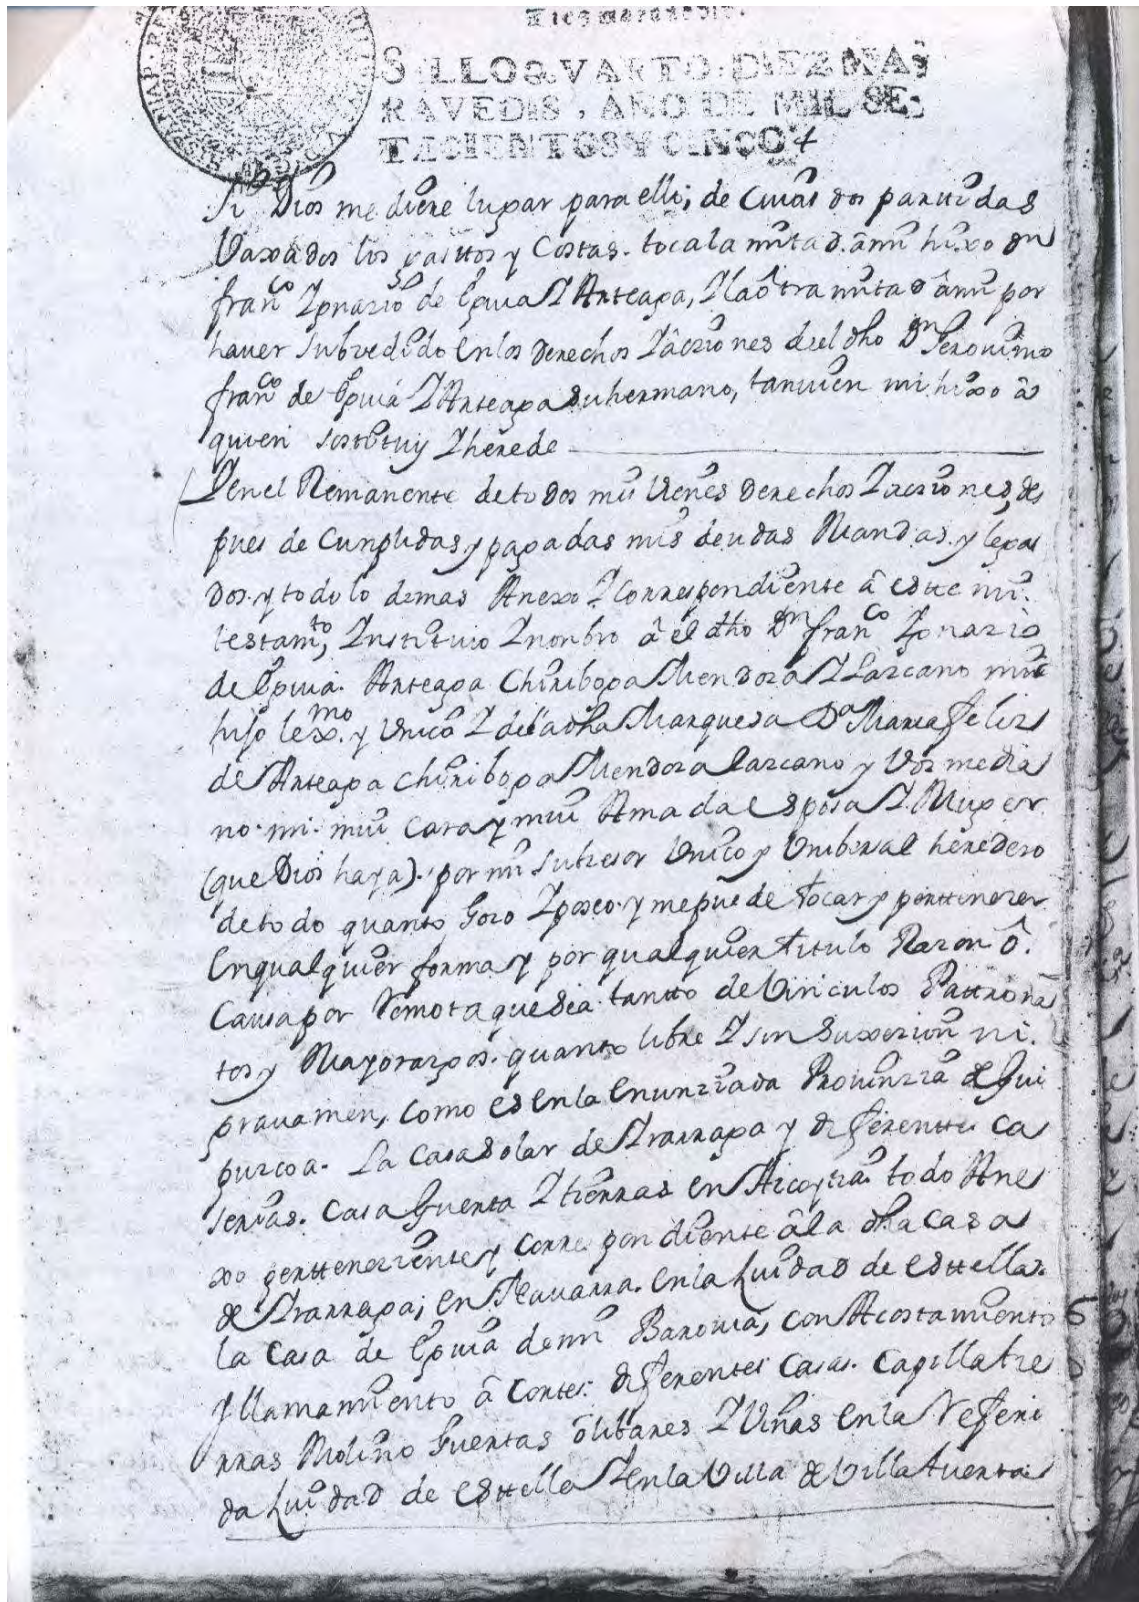 Diez maravedis.
SELLO QVARTO, DIEZ MA-
RAVEDIS, AÑO DE MIL SE-
TECIENTOS Y CINCO
Si Dios me diere lugar para ello; de Cuias dos partidas
Vaxados los gasttos y Costas. toca la mitad. â mi hixo Dn
franco Ygnazio de Eguia Y Arteaga, Y la ôtra mitad â mi por
haver subzedido en los derechos Y âcziones del dho Dn Geronimo
franco de Eguiâ Y Arteaga su hermano, tanvien mi hixo â
quien sostituiy Y herede
Y en el Remanente de todos mis Vienes Derechos Y acziones, des
pues de Cunplidas, y pagadas mis deudas Mandas. y lega
dos. y todo lo demas Anexo Y Correspondiente â estte mi.
testamto, Ynstituio Y nonbro â el dho Dn franco Ygnazio
de Eguia. Arteaga Chiriboga Mendoza Y Lazcano mi
hijo lexmo. y Vnico Y de la dha Marquesa Da Maria feliz
de Arteaga chiriboga Mendoza lazcano y Vozmedia
no. mi. mui cara y mui Amada esposa Y Muger
(que Dios haya). por mi subzesor Vnico y Vniversal heredero
de todo quanto Gozo Y poseo. y me puede tocar y perttenezer
En qualquier forma y por qualquier titulo Razon ô.
Causa por Remota que sea. tantto de Vinculos Pattrona
tos y Mayorazgos. quanto libre Y sin Suxezion ni.
gravamen, como es en la enunziada Provinzia de Gui
puzcoa. La Casa Solar de Yrarraga y diferenttes ca
serias. Casa Guerta Y tierras en Azcoytia. todo Ane
xo perttenezientte y correspondiente â la dha casa
de Yrarraga; en Navarra. en la Ziudad de Esttella.
la Casa de Eguia de mi Baronia, con Acostamiento
Y llamamiento â Cortes: diferentes Casas. Capilla tie
rras Molino Guertas ôlibares Y Viñas en la Referi
da Ziudad de Esttella Y en la Villa de Villatuerta